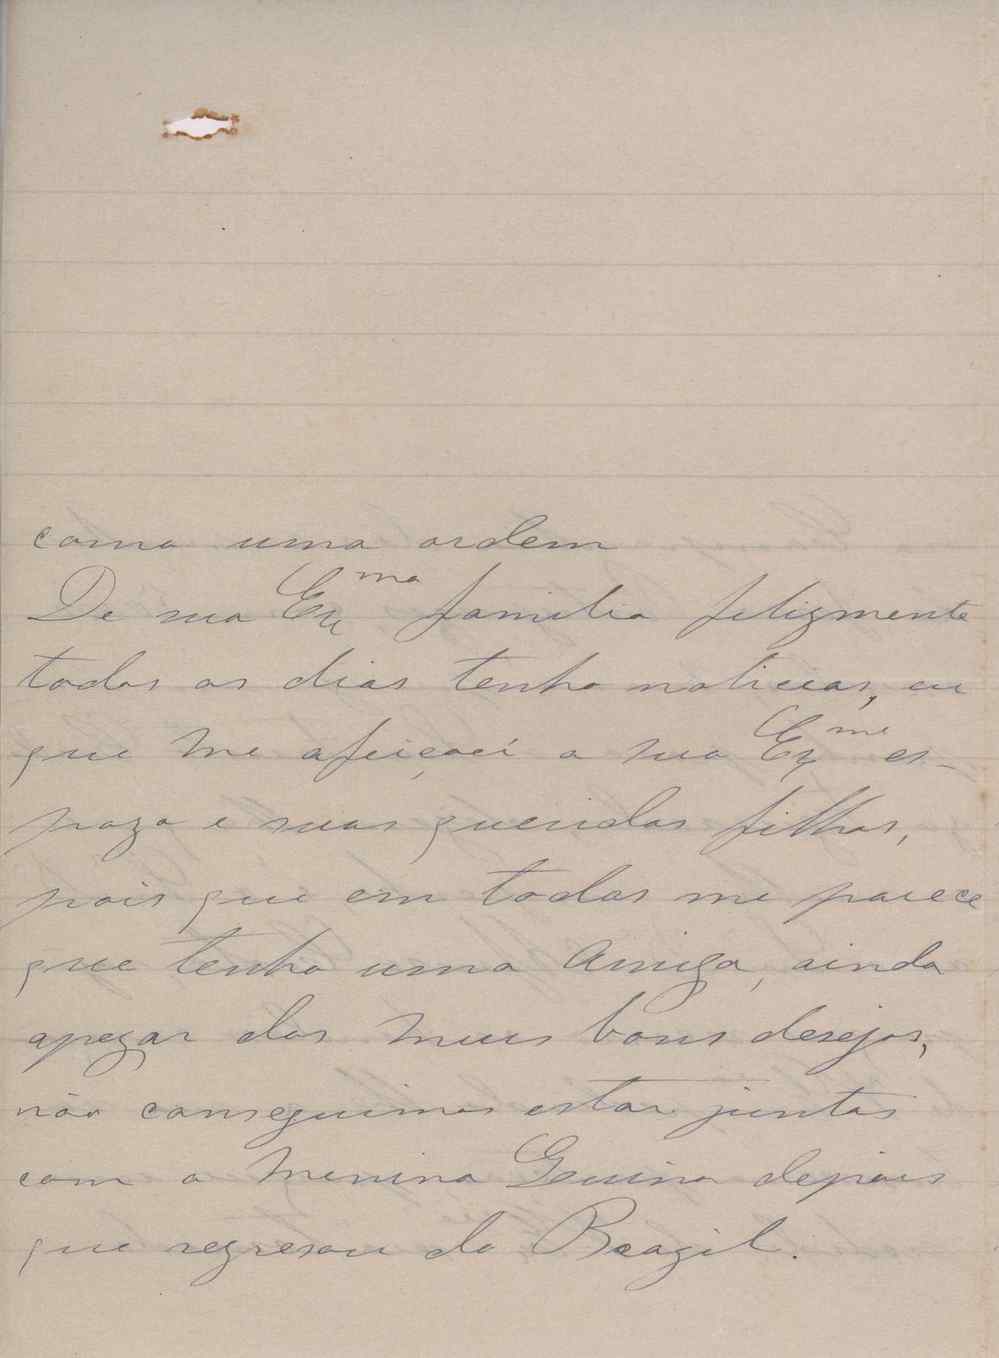 como uma ordem
De sua Ex^ma familia felizmente
todos os dias tenho noticias, eu
que me afeiçoei a sua Ex^ma es-
poza e suas queridas filhas,
pois que em todas me parece
que tenho uma Amiga, ainda
apezar dos meus bons desejos,
não conseguimos estar juntas
com a menina depois
que regresou do Brazil.